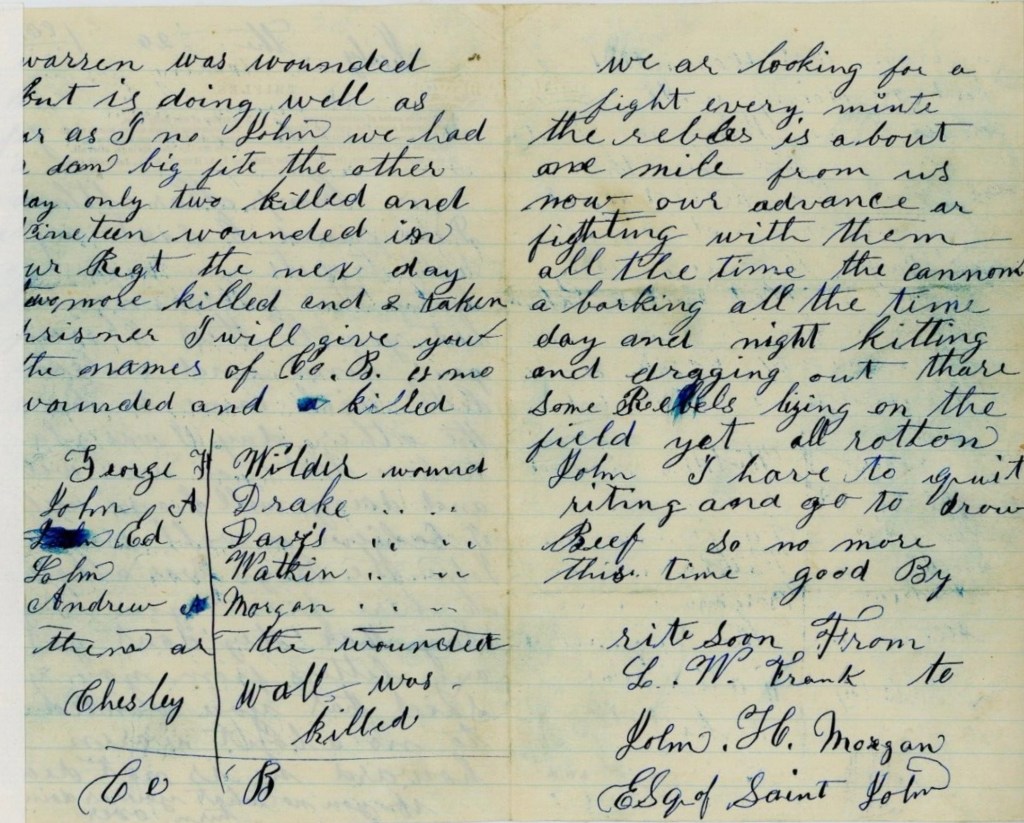 warren was wounded
But is doing well as
as I no John we had
dam big fite the other
day only two killed and
Nineteen wounded in
our Regt the nex day
two more killed and 2 taken
prisner I will give you
the names of Co. B. is mo
wounded and killed
George H Wilder wound
John A Drake .. ..
Ed Davis .. ..
John Watkin .. ..
Andrew A Morgan .. ..
them ar the wounded
Chesley wall was
killed
Co B
we ar looking for a
fight every minte
the rebles is about
one mile from us
now our advance ar
fighting with them
all the time the cannon
a barking all the time
day and night kitting
and dragging out thare
some Rebels lizing on the
field yet all rotton
John I have to quit
riting and go to drow
Beef so no more
this time good By
rite soon From
L. W. Frank to
John. H. Morgan
ESq of Saint John